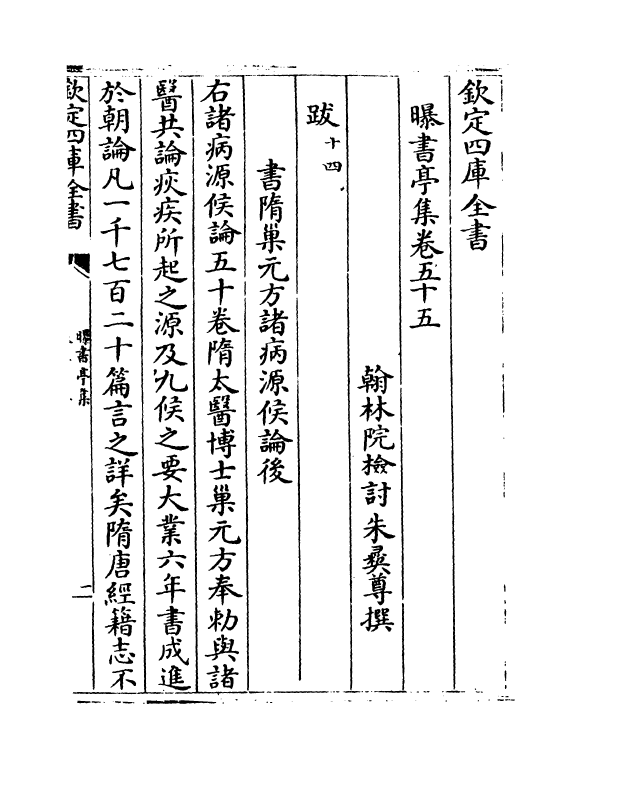 欽定四庫全書
曝書亭集卷五十五
翰林院檢討朱彝尊撰
跋十四
書隋巢元方諸病源候論後
右諸病源候論五十卷隋太醫博士巢元方奉勅與諸
醫共論疾所起之源及九候之要大業六年書成進
於朝論凡一千七百二十篇言之詳矣隋唐經籍志不
欽定四庫全書
曝書亭集